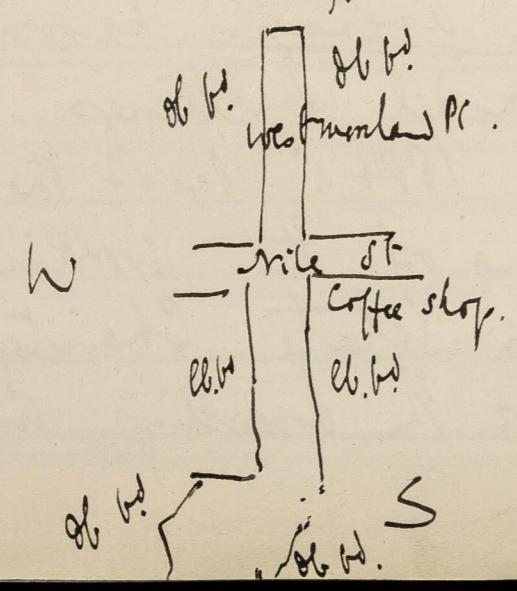 db bd.
db bd.
Westmorland Pl.
Nile St
W
Coffee shop.
lb.bd
lb.bd
db bd
S
db bd.